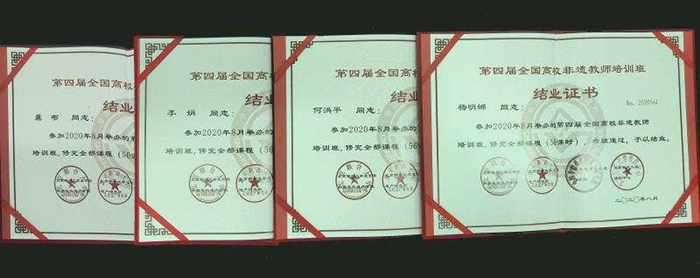 第四届全国高校
结业
龚韦 同志:
参加2020年8月举办的
培训班,修完全部课程(56
第四届全国高校
结业
李娟 同志:
参加2020年8月举办的
培训班,修完全部课程(56
第四届全国高校
结业
何洪平 同志:
参加2020年8月举办的第
培训班,修完全部课程(56
第四届全国高校非遗教师培训班
结业证书
杨明娜 同志:
参加2020年8月举办的第四届全国高校非遗教师
培训班,修完全部课程(56课时),考核通过,予以结业。
二〇二〇年八月